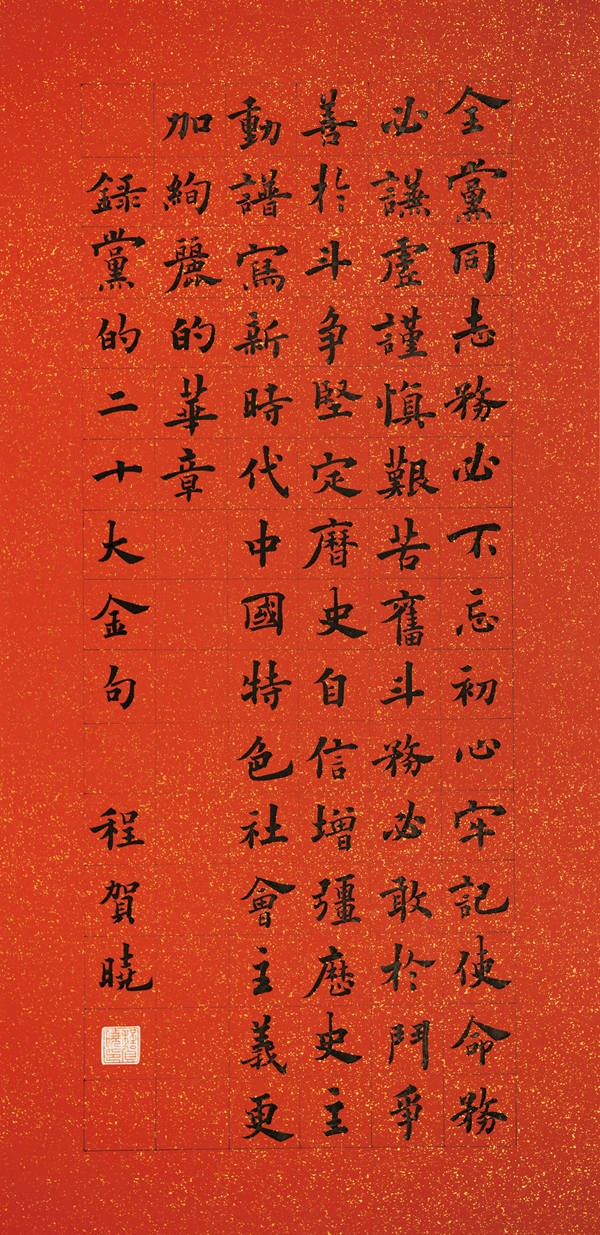 全黨同志務必不忘初心牢記使命務
必謙虛謹慎艱苦奮斗務必敢於鬥爭
善於斗争堅定曆史自信增彊歷史主
動譜寫新時代中國特色社會主義更
加絢麗的華章
錄黨的二十大金句 程賀曉